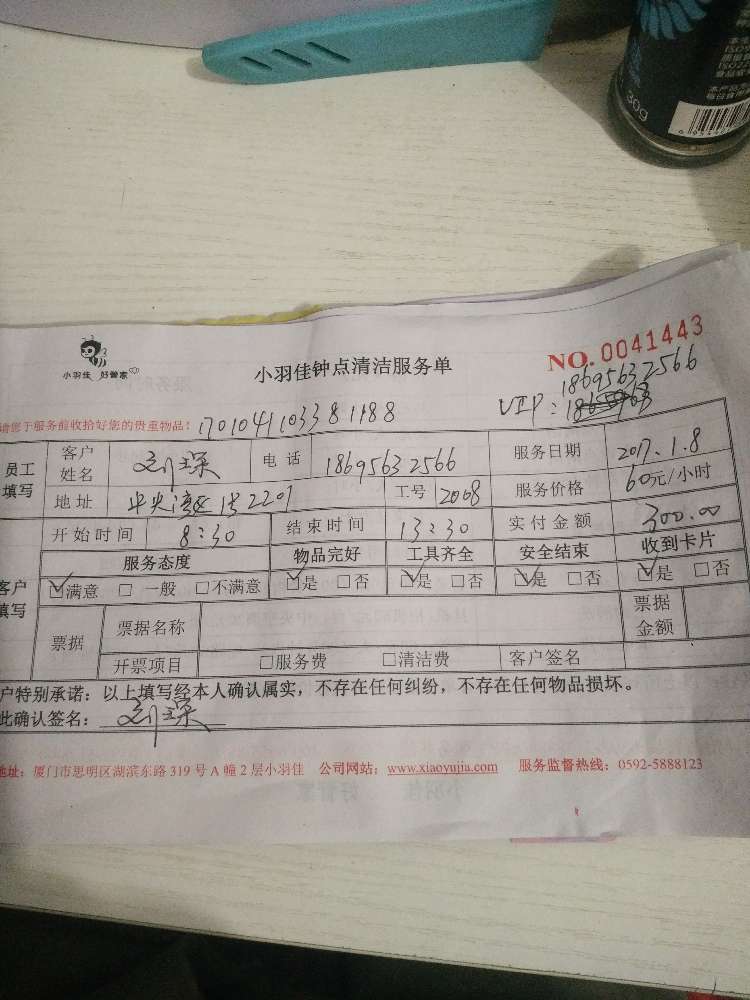 30g
小羽佳 好管家
小羽佳钟点清洁服务单
NO. 0041443
18695632566
VIP:
请您于服务前收拾好您的贵重物品!
1701041103381188
员工填写 客户姓名 电话 18695632566 服务日期 2017.1.8
地址 中央湾区 2201 工号 2008 服务价格 60元/小时
开始时间 8:30 结束时间 13:30 实付金额 300.00
服务态度 物品完好 工具齐全 安全结束 收到卡片
客户填写 ☑满意 □一般 □不满意 ☑是 □否 ☑是 □否 ☑是 □否 ☑是 □否
票据 票据名称 票据金额
开票项目 □服务费 □清洁费 客户签名
户特别承诺:以上填写经本人确认属实,不存在任何纠纷,不存在任何物品损坏。
此确认签名:
地址:厦门市思明区湖滨东路 319 号 A 幢 2 层小羽佳 公司网站:www.xiaoyujia.com 服务监督热线:0592-5888123